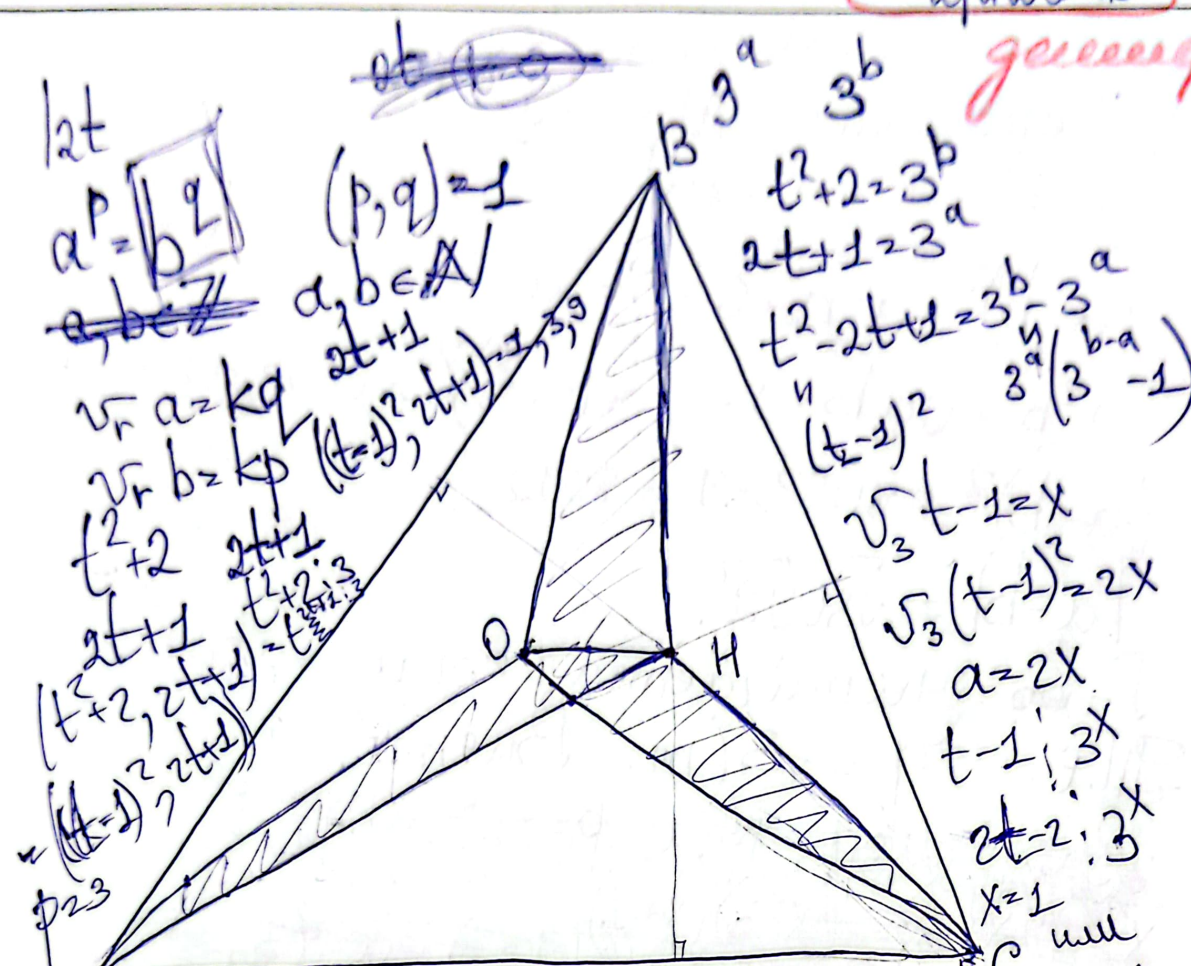 3^a 3^b
12t
a^p = b^q
(p, q) = 1
a, b ∈ ℤ
a, b ∈ ℕ
2t+1
v_r a = kq
v_r b = kp
((t-1)^2, 2t+1) = 1, 3, 9
t^2+2 2t+1
2t+1
t^2+2 ⋮ 3
2t+1 ⋮ 3
(t^2+2, 2t+1) =
= ((t-1)^2, 2t+1)
p=3
B
O
H
C
t^2+2=3^b
2t+1=3^a
t^2-2t+1=3^b-3^a
" "
(t-1)^2 3^a(3^{b-a}-1)
v_3 t-1=x
v_3 (t-1)^2=2x
a=2x
t-1 ⋮ 3^x
2t-2 ⋮ 3^x
x=1
или